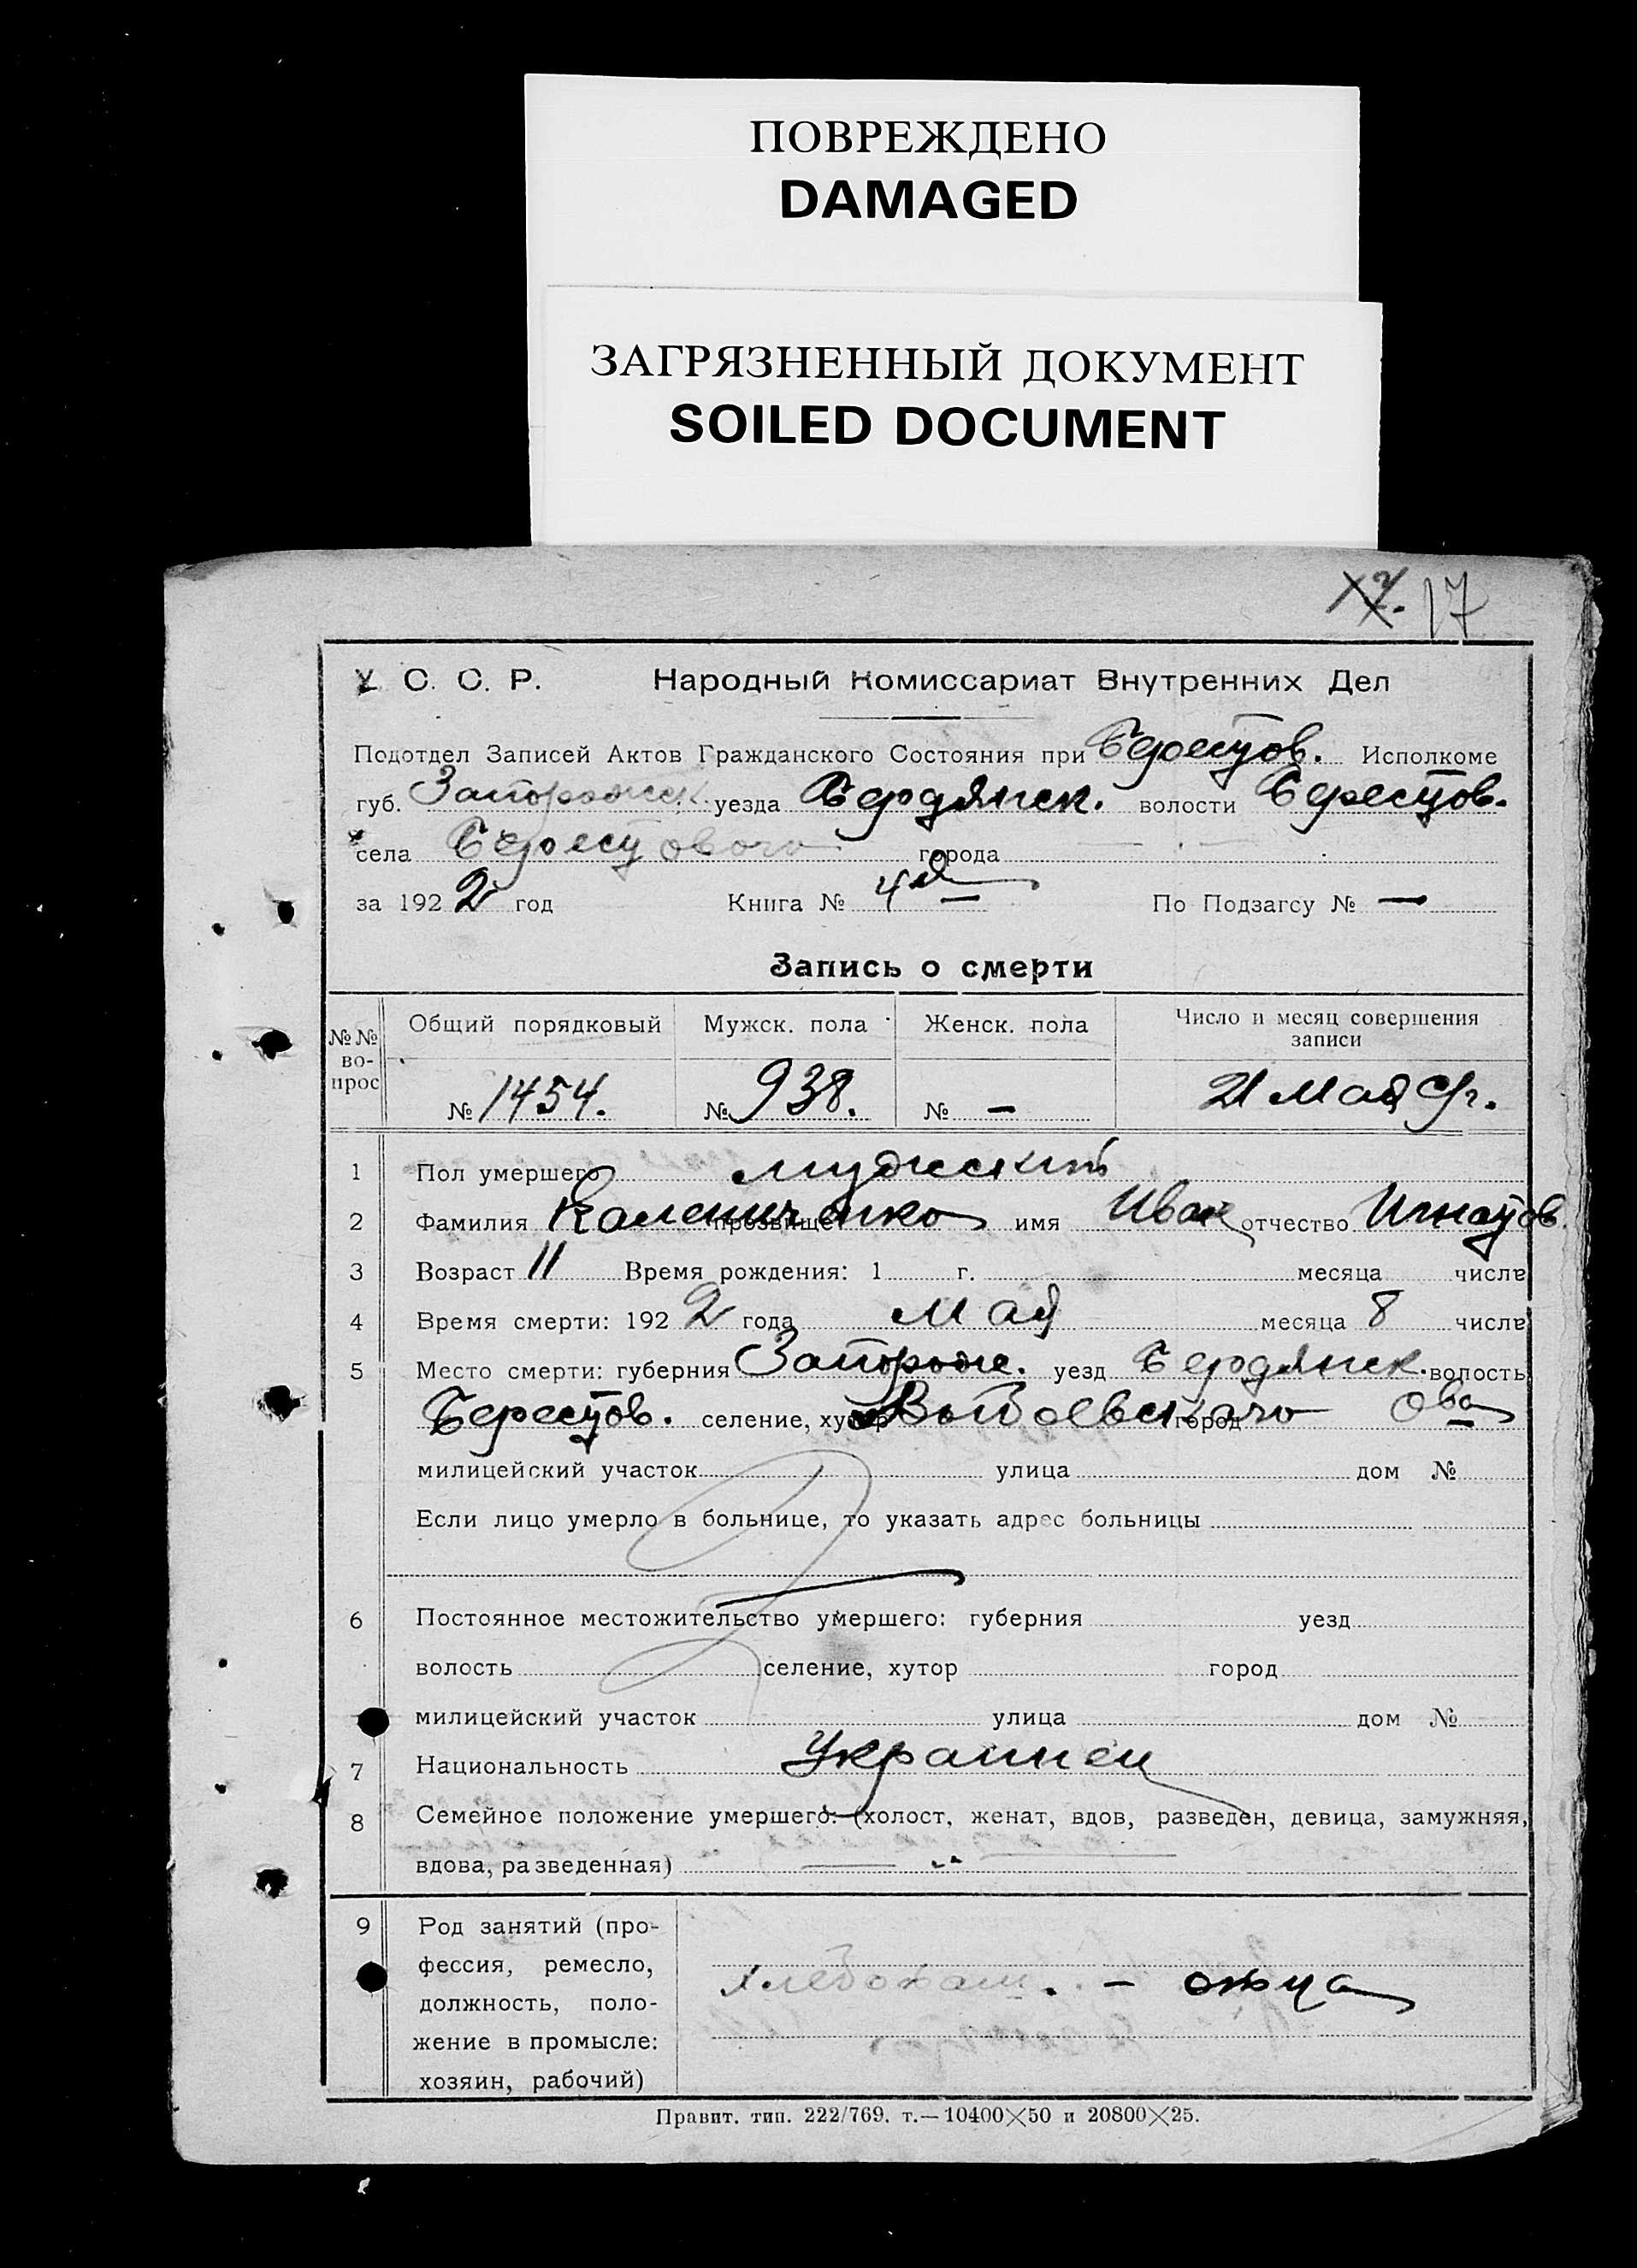 ПОВРЕЖДЕНО
DAMAGED
ЗАГРЯЗНЕННЫЙ ДОКУМЕНТ
SOILED DOCUMENT
17
У. С. С. Р. Народный Комиссариат Внутренних Дел
Подотдел Записей Актов Гражданского Состояния при Берестов. Исполкоме
губ. Запорожск. уезда Бердянск. волости Берестов.
села Берестового города —
за 1922 год Книга № 4й По Подзагсу № —
Запись о смерти
№№ вопрос Общий порядковый Мужск. пола Женск. пола Число и месяц совершения записи
№ 1454. № 938. № — 21 Мая с/г.
1 Пол умершего мужский
2 Фамилия прозвище Калениченко имя Иван отчество Игнатов
3 Возраст 11 Время рождения: 1 г. месяца числа
4 Время смерти: 1922 года Мая месяца 8 числа
5 Место смерти: губерния Запорож. уезд Бердянск. волость
Берестов. селение, хутор город Ова
милицейский участок улица дом №
Если лицо умерло в больнице, то указать адрес больницы
6 Постоянное местожительство умершего: губерния уезд
волость селение, хутор город
милицейский участок улица дом №
7 Национальность Украинец
8 Семейное положение умершего: (холост, женат, вдов, разведен, девица, замужняя,
вдова, разведенная)
9 Род занятий (про-
фессия, ремесло,
хлебопаш. — отца
должность, поло-
жение в промысле:
хозяин, рабочий)
Правит. тип. 222/769. т.—10400×50 и 20800×25.